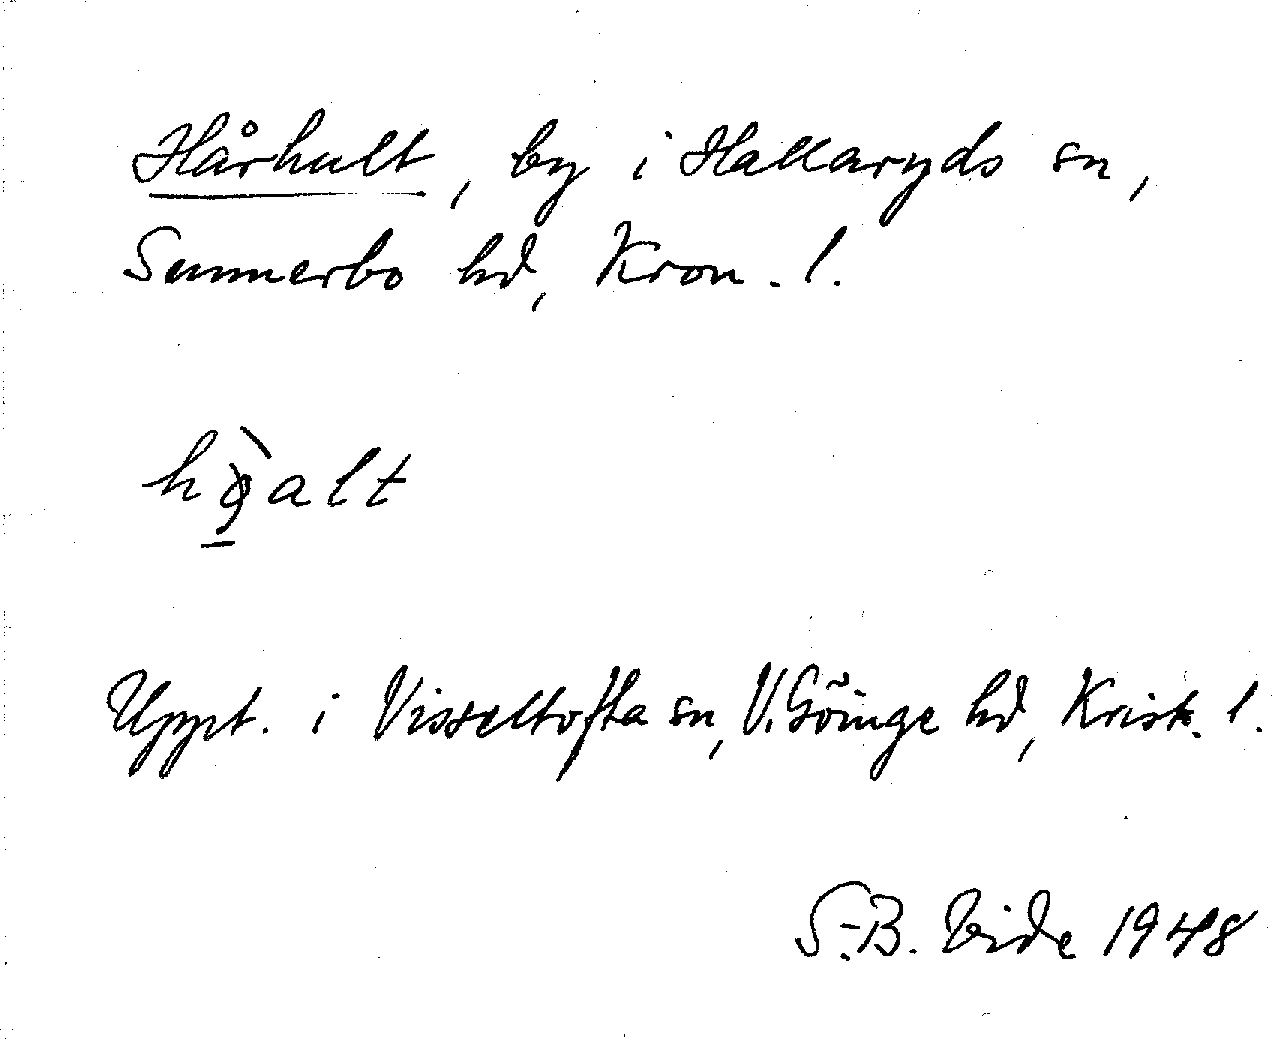 Hårhult, by i Hallaryds sn,
Sunnerbo hd, Kron. l.
Uppt. i Visseltofta sn, V. Göinge hd, Krist. l.
S.-B. Vide 1948